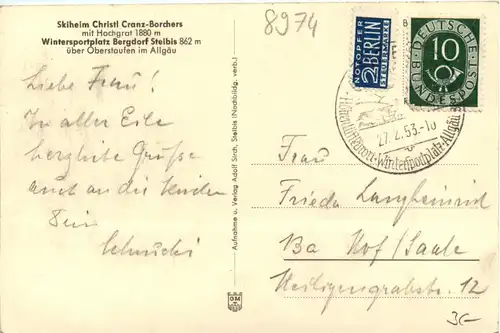 Skiheim Christl Cranz-Borchers
mit Hochgrat 1880 m
Wintersportplatz Bergdorf Steibis 862 m
über Oberstaufen im Allgäu
8974
NOTOPFER
2 BERLIN
STEUERMARKE
DEUTSCHE
BUNDESPOST
10
27.2.53.-10
Höhenluftkurort-Wintersportplatz-Allgäu
Liebe Frau!
In aller Eile
herzliche Grüße
auch an die Kinder
Dein
Schnucki
Aufnahme u. Verlag Adolf Sirch, Steibis (Nachbildg. verb.)
Frau
Frieda Langheinrid
Ba Hof/Saale
Heiligengrabstr. 12
3€